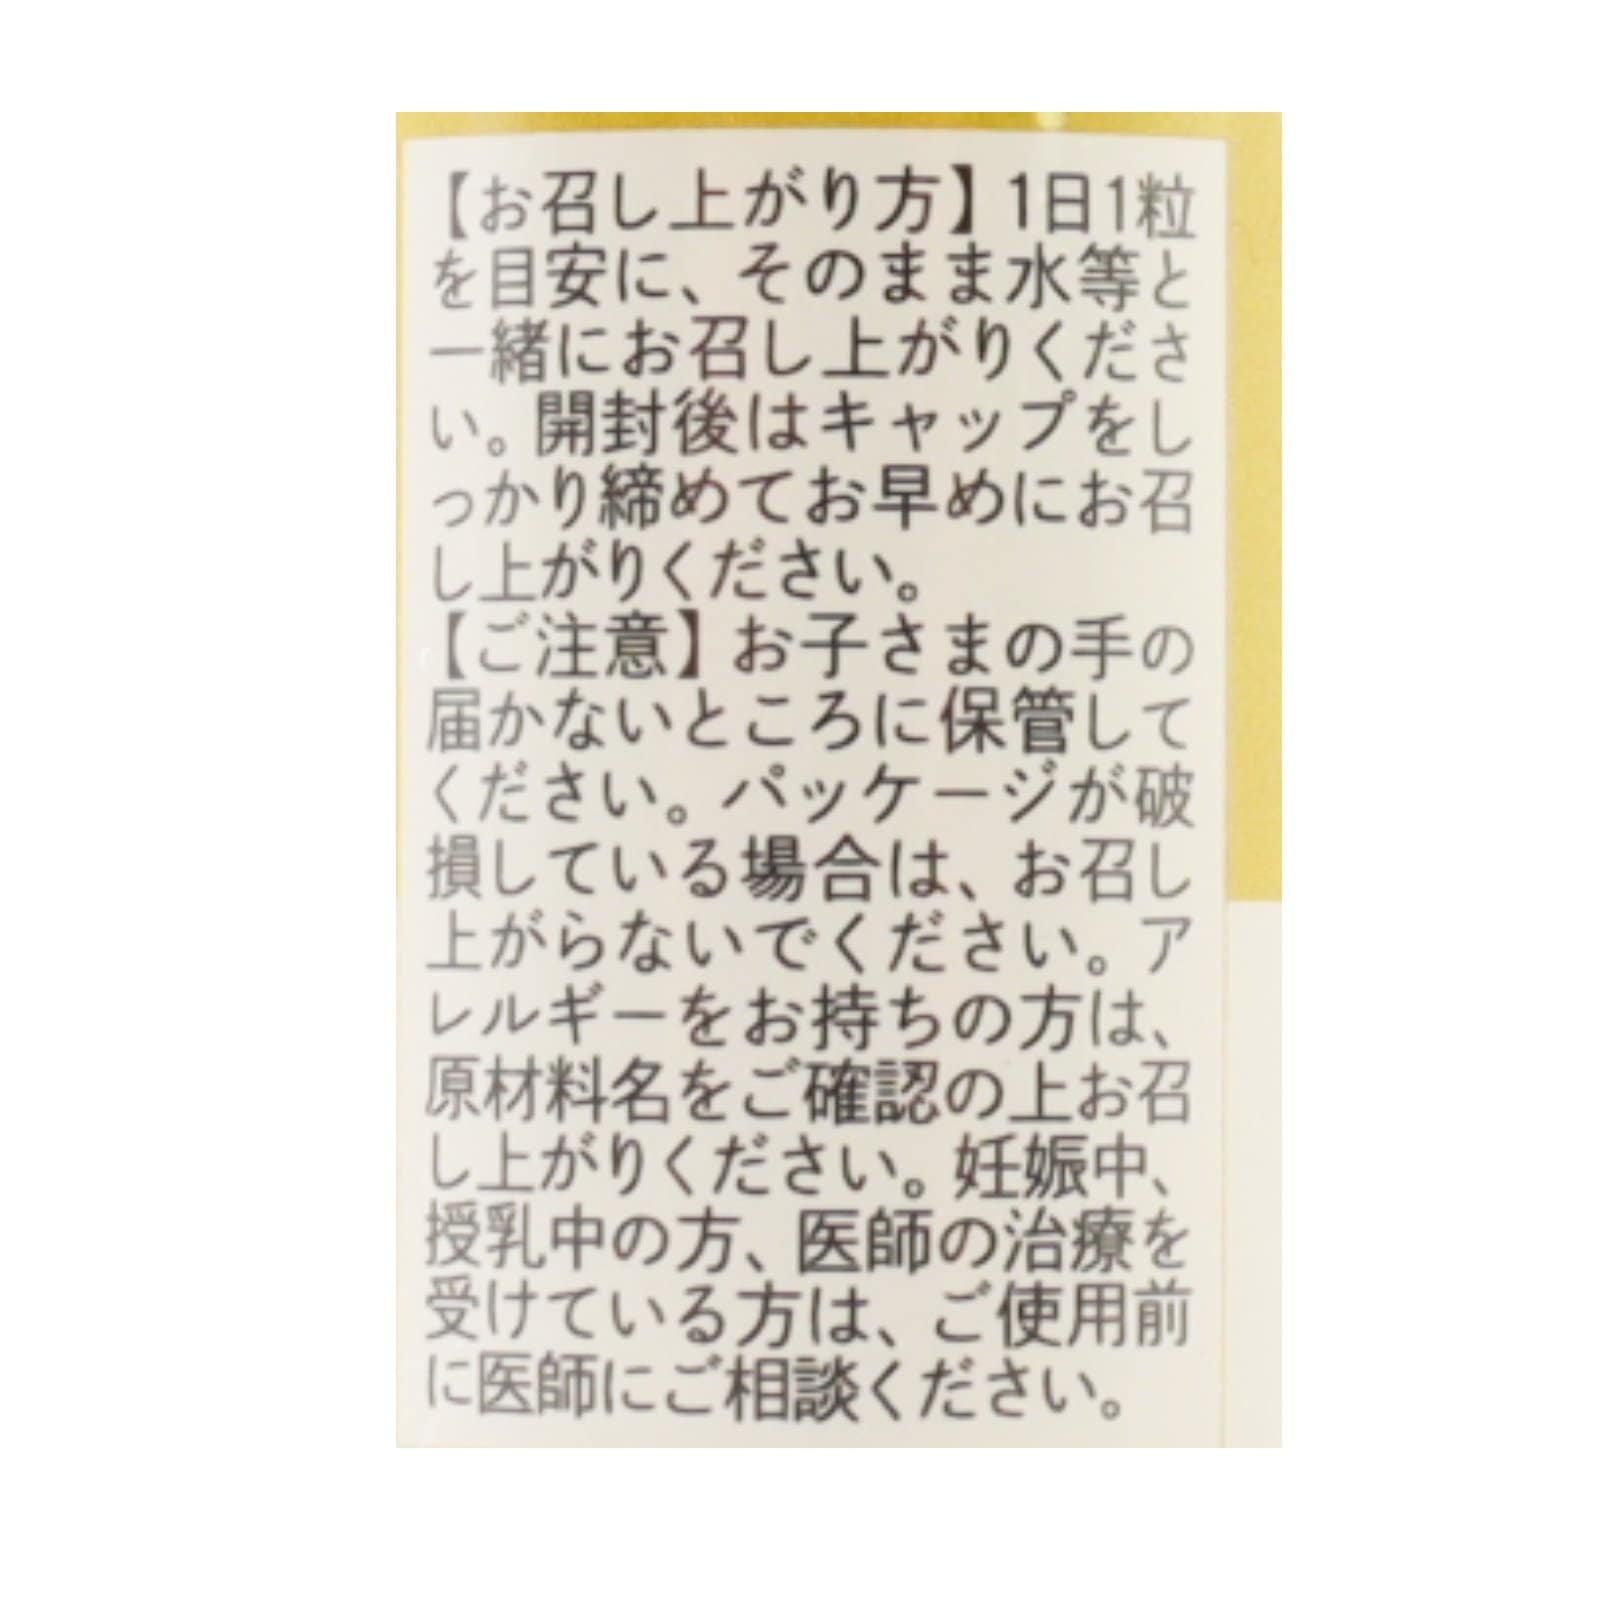 【お召し上がり方】1日1粒
を目安に、そのまま水等と
一緒にお召し上がりくださ
い。開封後はキャップをし
っかり締めてお早めにお召
し上がりください。
【ご注意】お子さまの手の
届かないところに保管して
ください。パッケージが破
損している場合は、お召し
上がらないでください。ア
レルギーをお持ちの方は、
原材料名をご確認の上お召
し上がりください。妊娠中、
授乳中の方、医師の治療を
受けている方は、ご使用前
に医師にご相談ください。